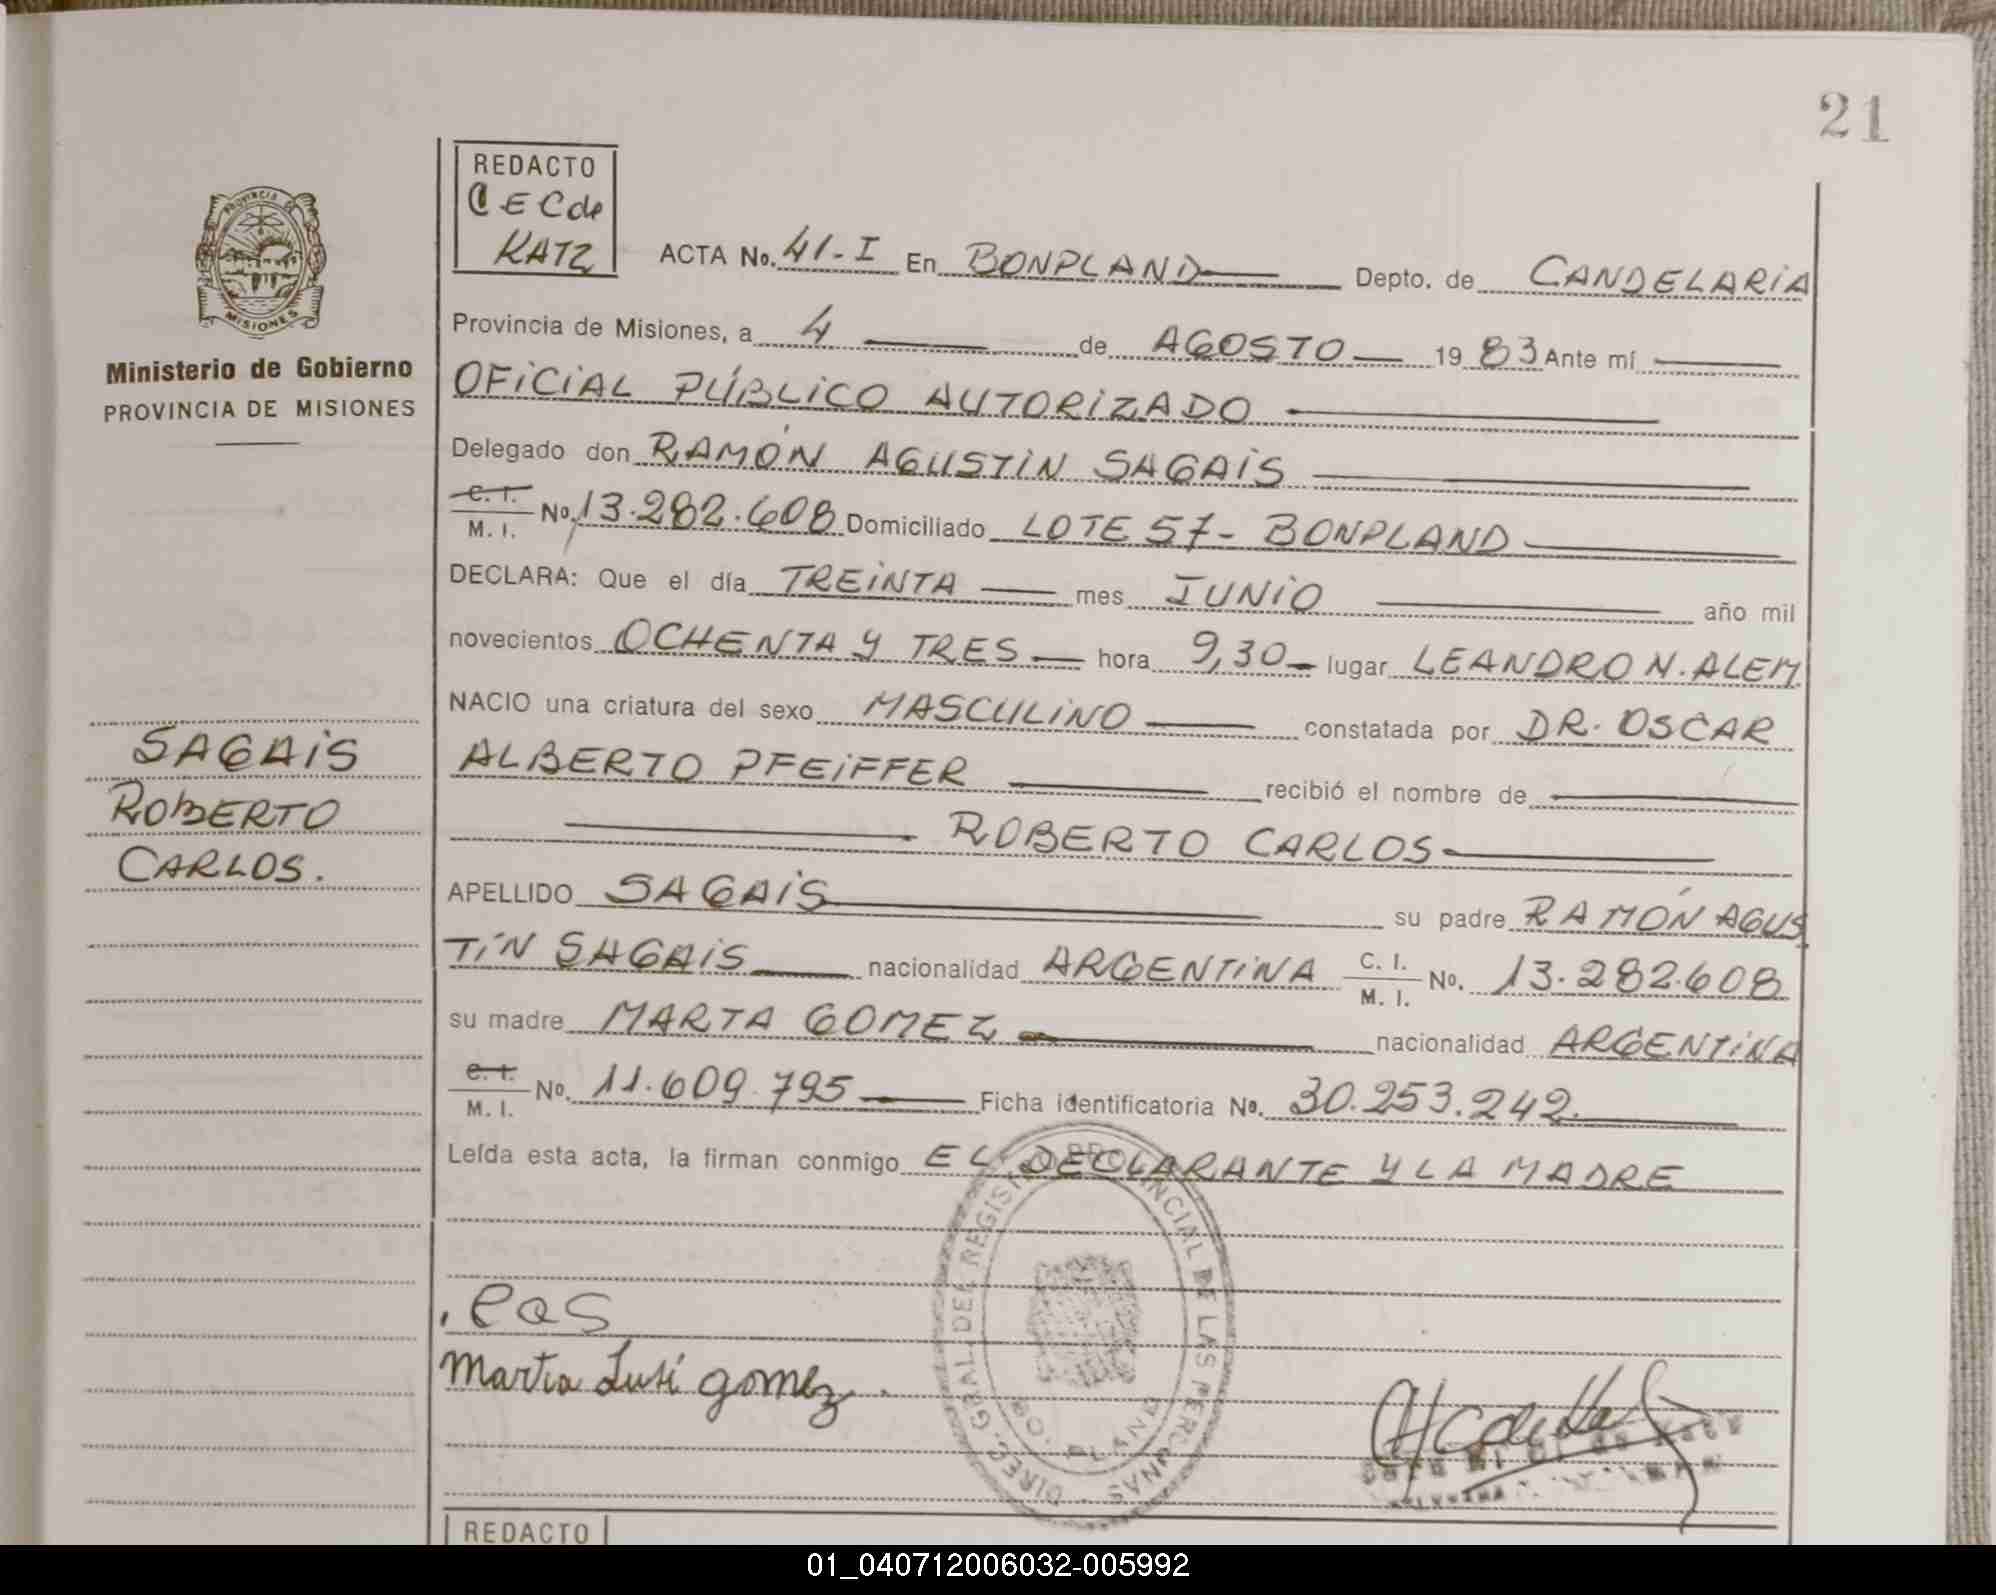 21
REDACTO
C E C de
KATZ
PROVINCIA DE
MISIONES
Ministerio de Gobierno
PROVINCIA DE MISIONES
ACTA No. 41-I En BONPLAND Depto. de CANDELARIA
Provincia de Misiones, a 4 de AGOSTO 1983 Ante mí
OFICIAL PÚBLICO AUTORIZADO
Delegado don RAMÓN AGUSTIN SAGAIS
C. I.
M. I. No. 13.282.608 Domiciliado LOTE 57- BONPLAND
DECLARA: Que el día TREINTA mes JUNIO año mil
novecientos OCHENTA Y TRES hora 9,30 lugar LEANDRO N. ALEM
NACIO una criatura del sexo MASCULINO constatada por DR. OSCAR
ALBERTO PFEIFFER recibió el nombre de
ROBERTO CARLOS
APELLIDO SAGAIS su padre RAMÓN AGUS
TIN SAGAIS nacionalidad ARGENTINA C. I.
M. I. No. 13.282.608
su madre MARTA GOMEZ nacionalidad ARGENTINA
C. I.
M. I. No. 11.609.795 Ficha identificatoria No. 30.253.242.
Leída esta acta, la firman conmigo EL DECLARANTE Y LA MADRE
SAGAIS
ROBERTO
CARLOS.
DIREC. GRAL. DEL REGISTRO PROVINCIAL DE LAS PERSONAS
BONPLAND
Marta Lusi gomez
REDACTO
01_040712006032-005992